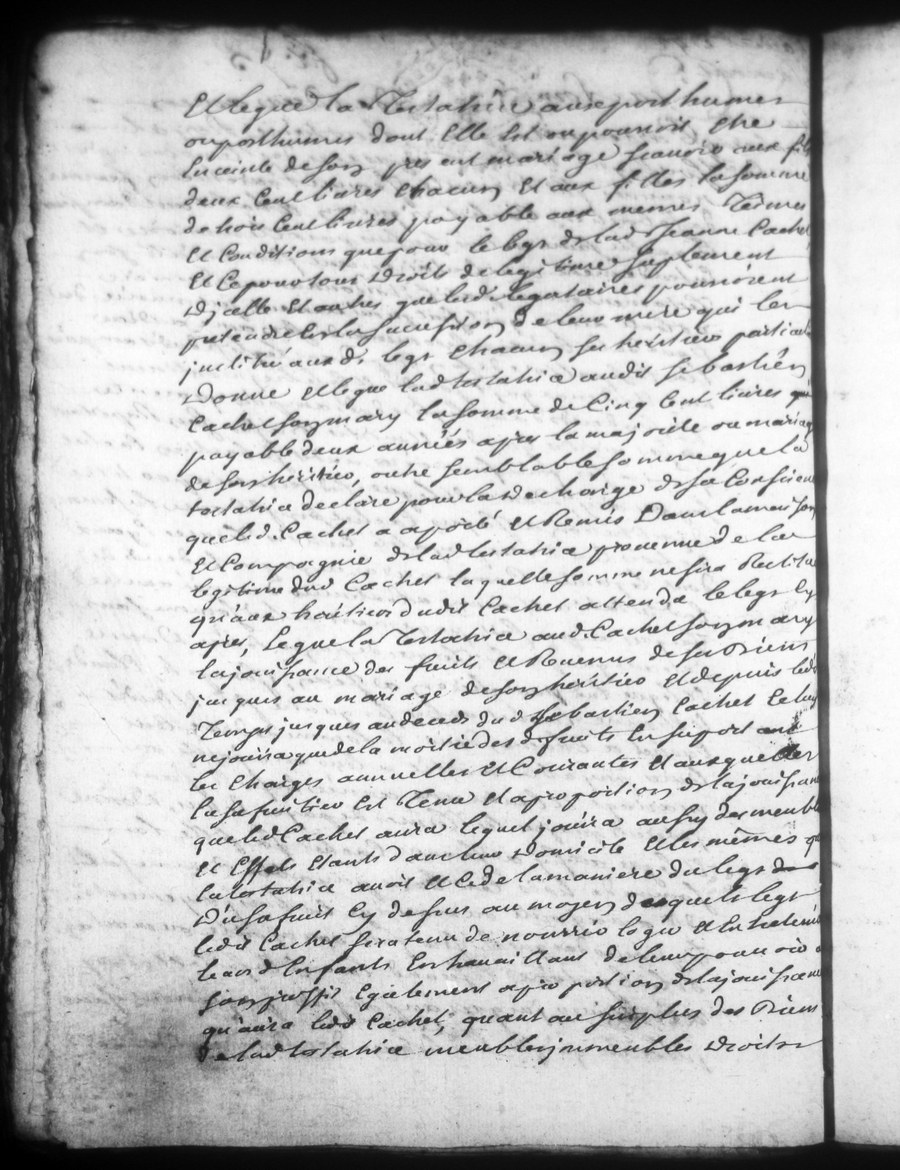 Et legue la Testatrice aux posthumes
ou posthumes dont Elle Est ou pourroit Etre
Enceinte de son present mariage scavoir aux fils
deux Cent livres chacun Et aux filles la somme
de trois Cent livres payable aux memes Termes
Et Conditions que pour le legs de lad Jeanne Cachet
Et Ce pour tous Droits de legitime suplement
D'jcelle Et autres que lesd. legataires pourroient
pretendre En la succession de leur mere qui les
jnstitue auxds legs chacun ses heritiers particul
Donne Et legue lad testatrice audit sebastien
Cachet son mary la somme de Cinq Cent livres
payable deux années apres la majorite ou mariage
de son heritier, outre semblable somme que la
testatrice declare pour la decharge de sa Conscien
que led. Cachet a aporté Et Remis Dans la maison
Et Compagnie de lad testatrice provenue de la
legitime dud Cachet laquelle somme ne sera Restitu
qu'aux heritiers dudit Cachet attendu le legs Cy
apres, Legue la Testatrice aud. Cachet son mary
la jouissance des fruits Et Revenus de ses Biens
jusques au mariage de son heritier Et depuis led
Temps jusques au deceds dud sebastien Cachet Celuy
ne jouira que de la moitie des dts fruits En suport
les charges annuelles Et Courantes Et auxquelles
l'usufruitier Est Tenu Et a proportion de la jouissan
que led Cachet aura lequel jouira aussy des meubl
Et Effets Etants dans leur Domicile Et les mêmes q
la testatrice avoit Et Ce de la maniere du legs
D'usufruit Cy dessus au moyen desquels legs
ledit Cachet sera tenu de nourrir loger Et Entretenir
leurs d Enfants En travaillant de leur pouvoir a
son proffit Egalement a proportion de la jouissance
qu'aura ledit Cachet, quant au surplus des Biens
de lad testatrice meubles jmmeubles Droits